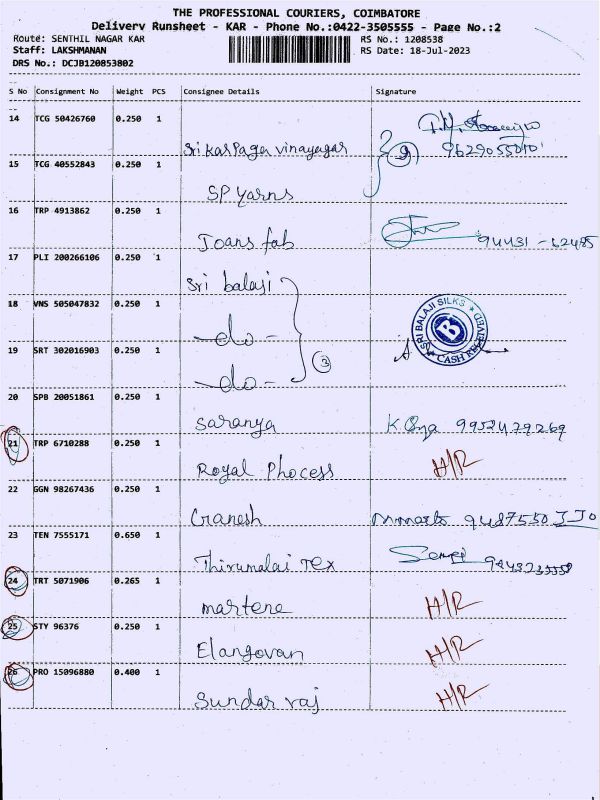 THE PROFESSIONAL COURIERS, COIMBATORE
Delivery Runsheet - KAR - Phone No.:0422-3505555 - Page No.:2
Route: SENTHIL NAGAR KAR
RS No.: 1208538
Staff: LAKSHMANAN
RS Date: 18-Jul-2023
DRS No.: DCJB120853802
S No Consignment No Weight PCS Consignee Details Signature
14 TCG 50426760 0.250 1
Sri Karpaga vinayagar 9629055010
15 TCG 40552843 0.250 1
SP yarns
16 TRP 4913862 0.250 1
Joans fab 94431-62485
17 PLI 200266106 0.250 1
Sri balaji
18 VNS 505047832 0.250 1
-do-
SRI BALAJI SILKS
B
CASH RECEIVED
19 SRT 302016903 0.250 1
-do- 3
20 SPB 20051861 0.250 1
Saranya
21 TRP 6710288 0.250 1
Royal Phocess H/R
22 GGN 98267436 0.250 1
Ganesh
23 TEN 7555171 0.650 1
Thirumalai Tex
24 TRT 5071906 0.265 1
martene H/R
25 STY 96376 0.250 1
Elangovan H/R
26 PRO 15096880 0.400 1
Sundar raj H/R